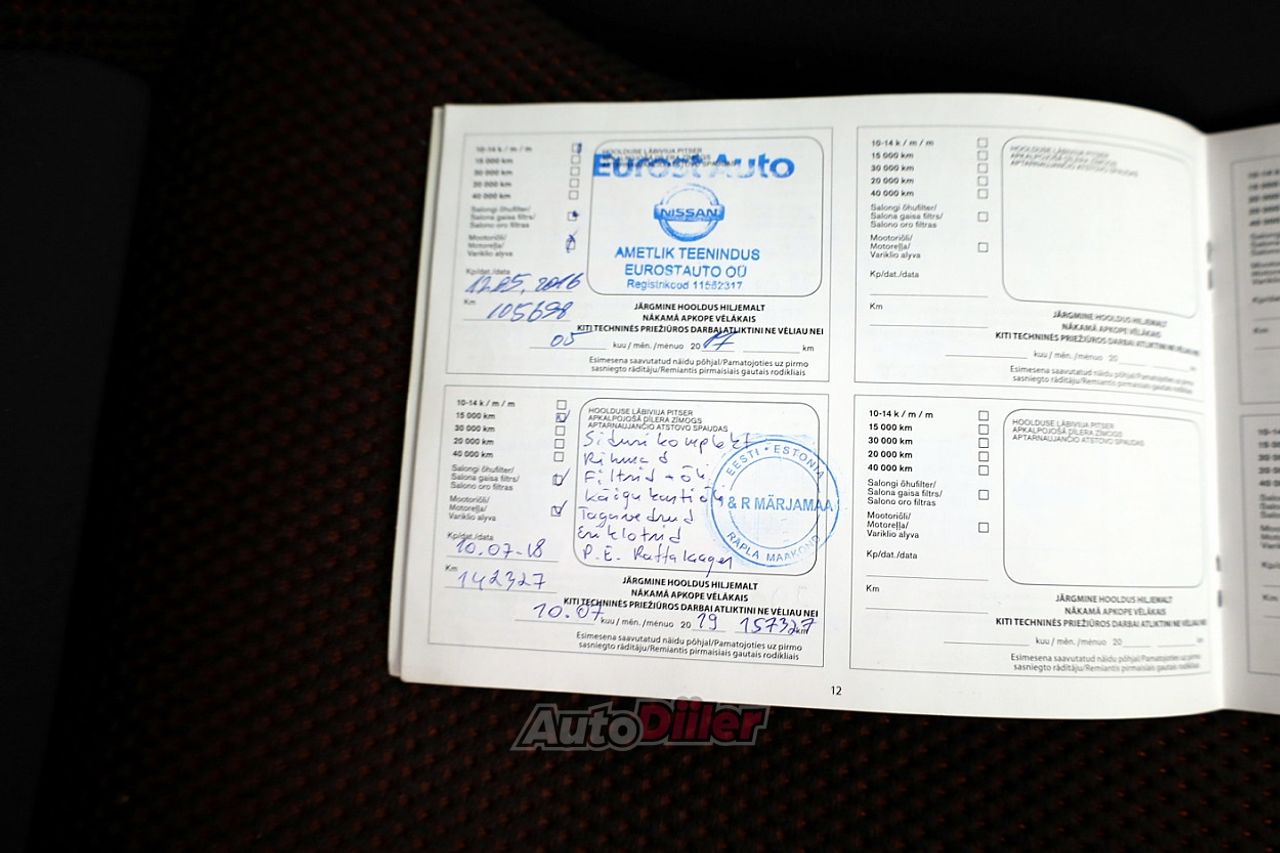 10-14 k / m / m
15 000 km
30 000 km
20 000 km
40 000 km
Salongi õhufilter/
Salona gaisa filtrs/
Salono oro filtras
Mootoriõli/
Motoreļļa/
Variklio alyva
Kp/dat./data
12.05.2016
Km
105698
HOOLDUSE LÄBIVIIJA PITSER
Eurost Auto
NISSAN
AMETLIK TEENINDUS
EUROSTAUTO OÜ
Registrikood 11582317
JÄRGMINE HOOLDUS HILJEMALT
NĀKAMĀ APKOPE VĒLĀKAIS
KITI TECHNINĖS PRIEŽIŪROS DARBAI ATLIKTINI NE VĖLIAU NEI
05 kuu / mēn. /mėnuo 20 17 km
Esimesena saavutatud näidu põhjal/Pamatojoties uz pirmo
sasniegto rādītāju/Remiantis pirmaisiais gautais rodikliais
10-14 k / m / m
15 000 km
30 000 km
20 000 km
40 000 km
Salongi õhufilter/
Salona gaisa filtrs/
Salono oro filtras
Mootoriõli/
Motoreļļa/
Variklio alyva
Kp/dat./data
Km
HOOLDUSE LÄBIVIIJA PITSER
APKALPOJOŠĀ DĪLERA ZĪMOGS
APTARNAUJANČIO ATSTOVO SPAUDAS
JÄRGMINE HOOLDUS HILJEMALT
NĀKAMĀ APKOPE VĒLĀKAIS
KITI TECHNINĖS PRIEŽIŪROS DARBAI ATLIKTINI NE VĖLIAU NEI
kuu / mēn. /mėnuo 20
Esimesena saavutatud näidu põhjal/Pamatojoties uz pirmo
sasniegto rādītāju/Remiantis pirmaisiais gautais rodikliais
10-14 k / m / m
15 000 km
30 000 km
20 000 km
40 000 km
Salongi õhufilter/
Salona gaisa filtrs/
Salono oro filtras
Mootoriõli/
Motoreļļa/
Variklio alyva
Kp/dat./data
10.07-18
Km
142327
HOOLDUSE LÄBIVIIJA PITSER
APKALPOJOŠĀ DĪLERA ZĪMOGS
APTARNAUJANČIO ATSTOVO SPAUDAS
Siduri komplekt
Rihmad
Filtrid - õli
Käigukastiõli
Tagavedrud
Eriklotsid
P. E. Rattalaager
EESTI * ESTONIA
& R MÄRJAMAA
RAPLA MAAKOND
JÄRGMINE HOOLDUS HILJEMALT
NĀKAMĀ APKOPE VĒLĀKAIS
KITI TECHNINĖS PRIEŽIŪROS DARBAI ATLIKTINI NE VĖLIAU NEI
10.07 kuu / mēn. /mėnuo 20 19 157327 km
Esimesena saavutatud näidu põhjal/Pamatojoties uz pirmo
sasniegto rādītāju/Remiantis pirmaisiais gautais rodikliais
10-14 k / m / m
15 000 km
30 000 km
20 000 km
40 000 km
Salongi õhufilter/
Salona gaisa filtrs/
Salono oro filtras
Mootoriõli/
Motoreļļa/
Variklio alyva
Kp/dat./data
Km
HOOLDUSE LÄBIVIIJA PITSER
APKALPOJOŠĀ DĪLERA ZĪMOGS
APTARNAUJANČIO ATSTOVO SPAUDAS
JÄRGMINE HOOLDUS HILJEMALT
NĀKAMĀ APKOPE VĒLĀKAIS
KITI TECHNINĖS PRIEŽIŪROS DARBAI ATLIKTINI NE VĖLIAU NEI
kuu / mēn. /mėnuo 20
Esimesena saavutatud näidu põhjal/Pamatojoties uz pirmo
sasniegto rādītāju/Remiantis pirmaisiais gautais rodikliais
12
AutoDiiler